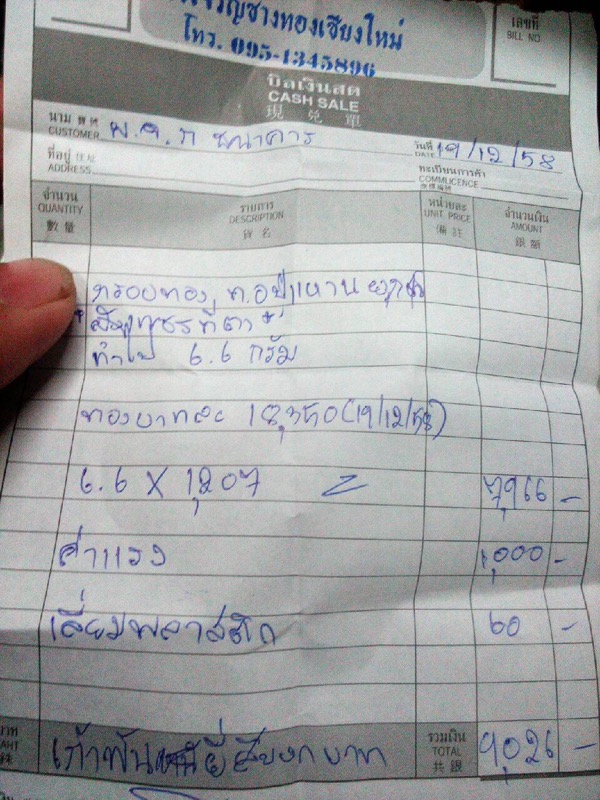 เจริญช่างทองเชียงใหม่
โทร. 095-1345896
เลขที่
BILL NO
บิลเงินสด
CASH SALE
現兌單
นาม CUSTOMER พ.จ.ก ธนาคาร
วันที่ DATE 19/12/58
ที่อยู่ ADDRESS
ทะเบียนการค้า
COMMUCENCE
จำนวน QUANTITY 數量
รายการ DESCRIPTION 貨名
หน่วยละ UNIT PRICE 備註
จำนวนเงิน AMOUNT 銀額
กรอบทอง
ที่ตา
ทำไป 6.6 กรัม
ทองบาทละ 18,350 (19/12/58)
6.6 X 1,207 = 7,966 -
ค่าแรง 1,000 -
เลี่ยมพลาสติก 60 -
เก้าพัน ยี่สิบหกบาท
รวมเงิน TOTAL 共銀 9,026 -